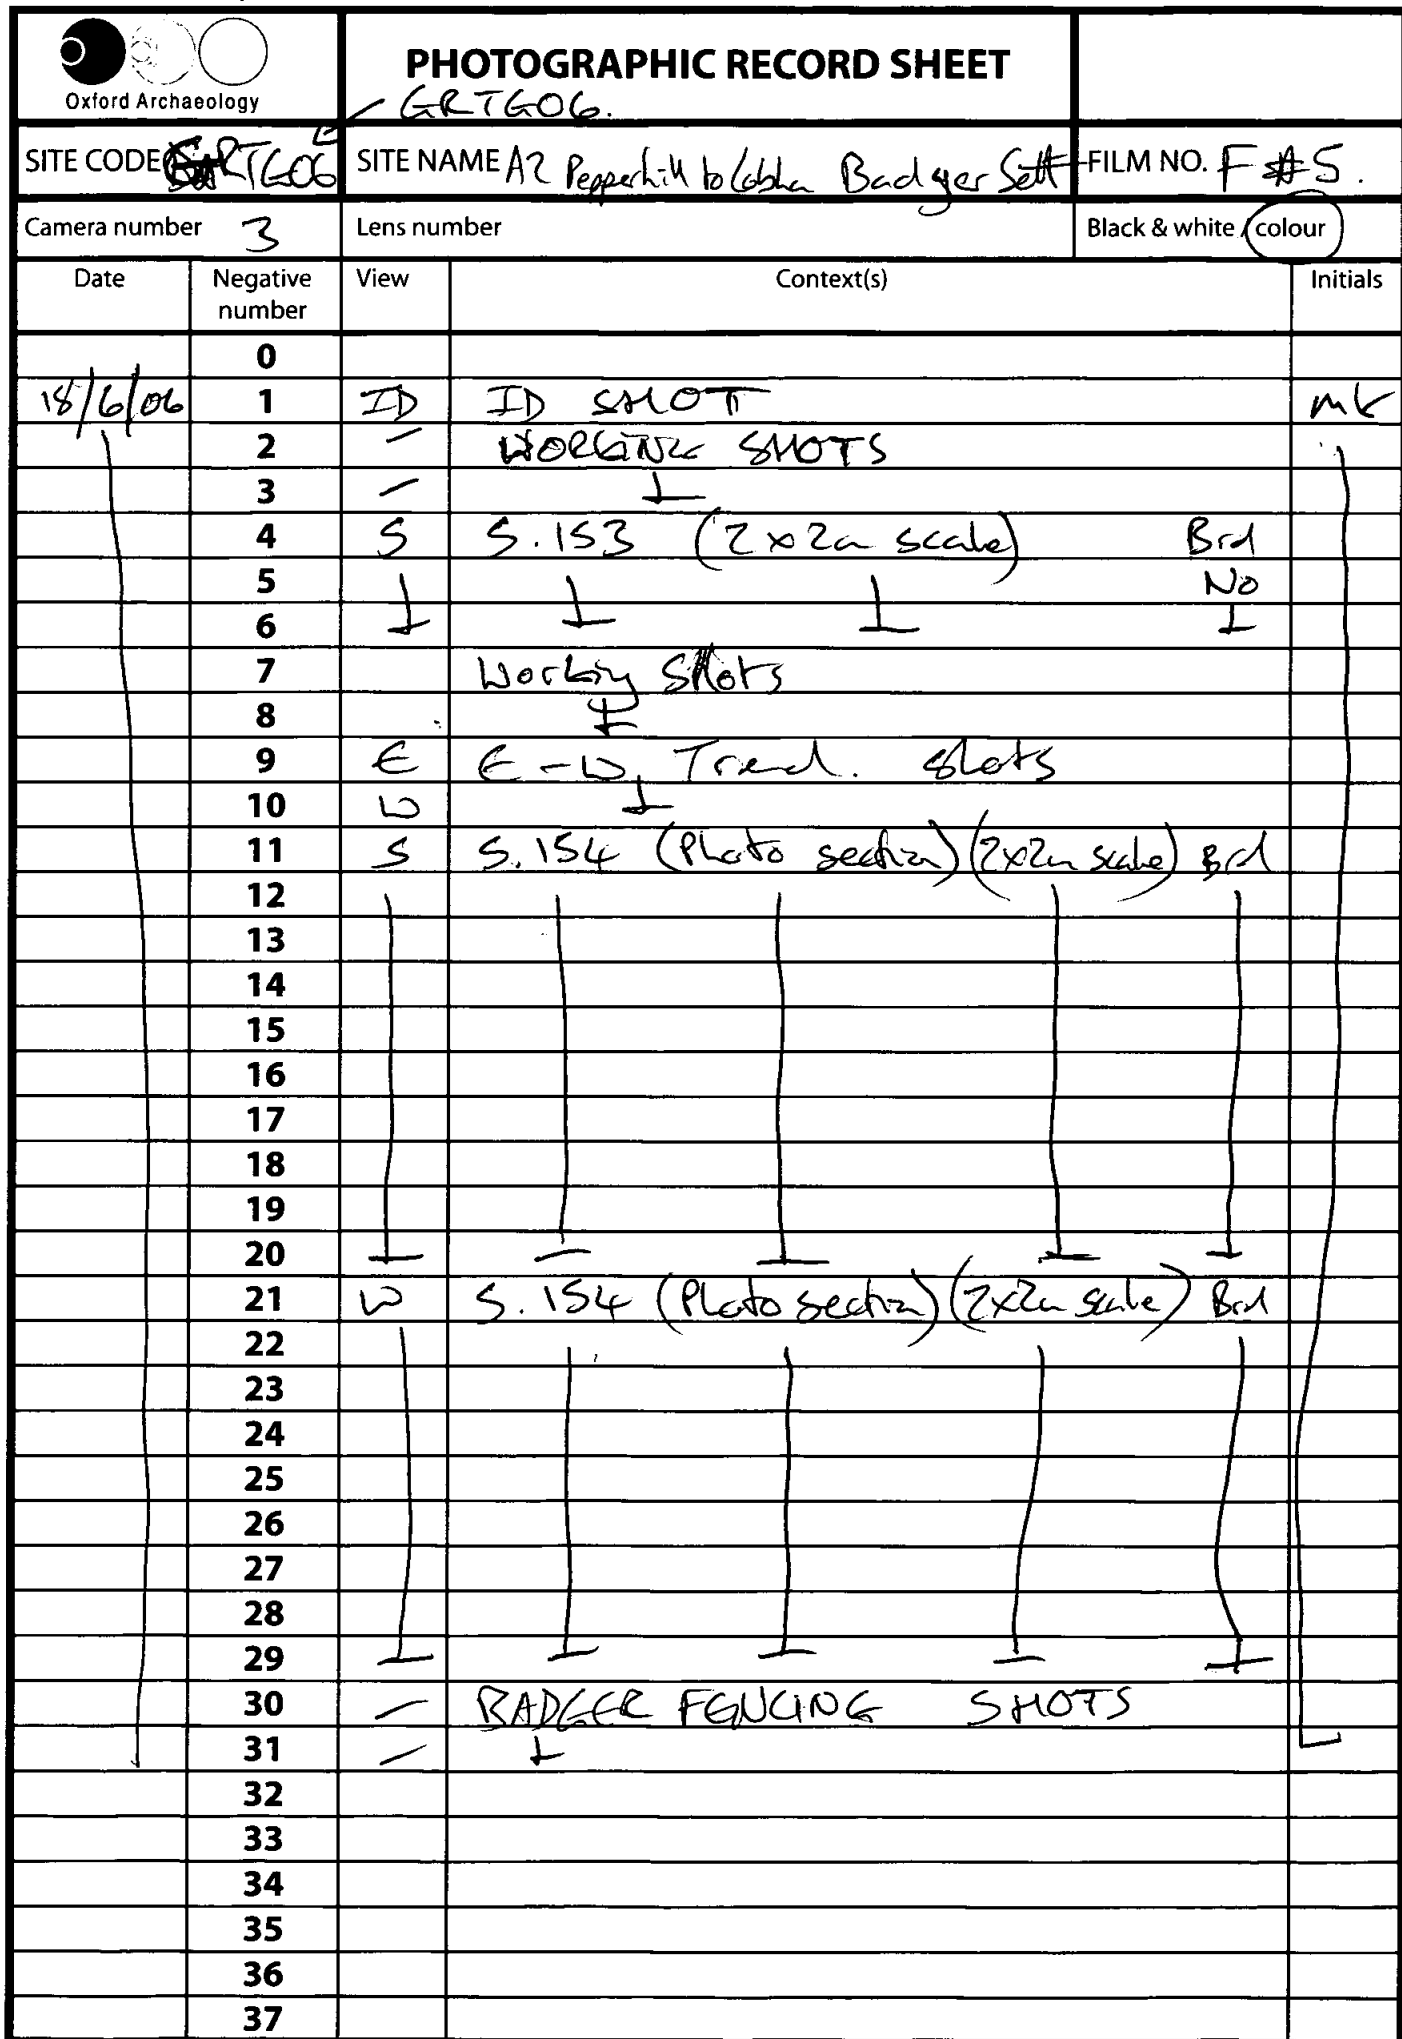 Oxford Archaeology
PHOTOGRAPHIC RECORD SHEET
GRTG06.
SITE CODE RTG06 SITE NAME A2 Pepperhill to Cobham Badger Sett FILM NO. F #5.
Camera number 3 Lens number Black & white / colour
Date Negative number View Context(s) Initials
0
18/6/06 1 ID ID SHOT MK
2 – WORKING SHOTS
3 –
4 S S.153 (2x2m scale) Brd
5 No
6
7 Working Shots
8
9 E E-W, shots
10 W
11 S S.154 (Photo section) (2x2m scale) Brd
12
13
14
15
16
17
18
19
20
21 W S.154 (Photo section) (2x2m scale) Brd
22
23
24
25
26
27
28
29
30 – BADGER FENCING SHOTS
31 –
32
33
34
35
36
37